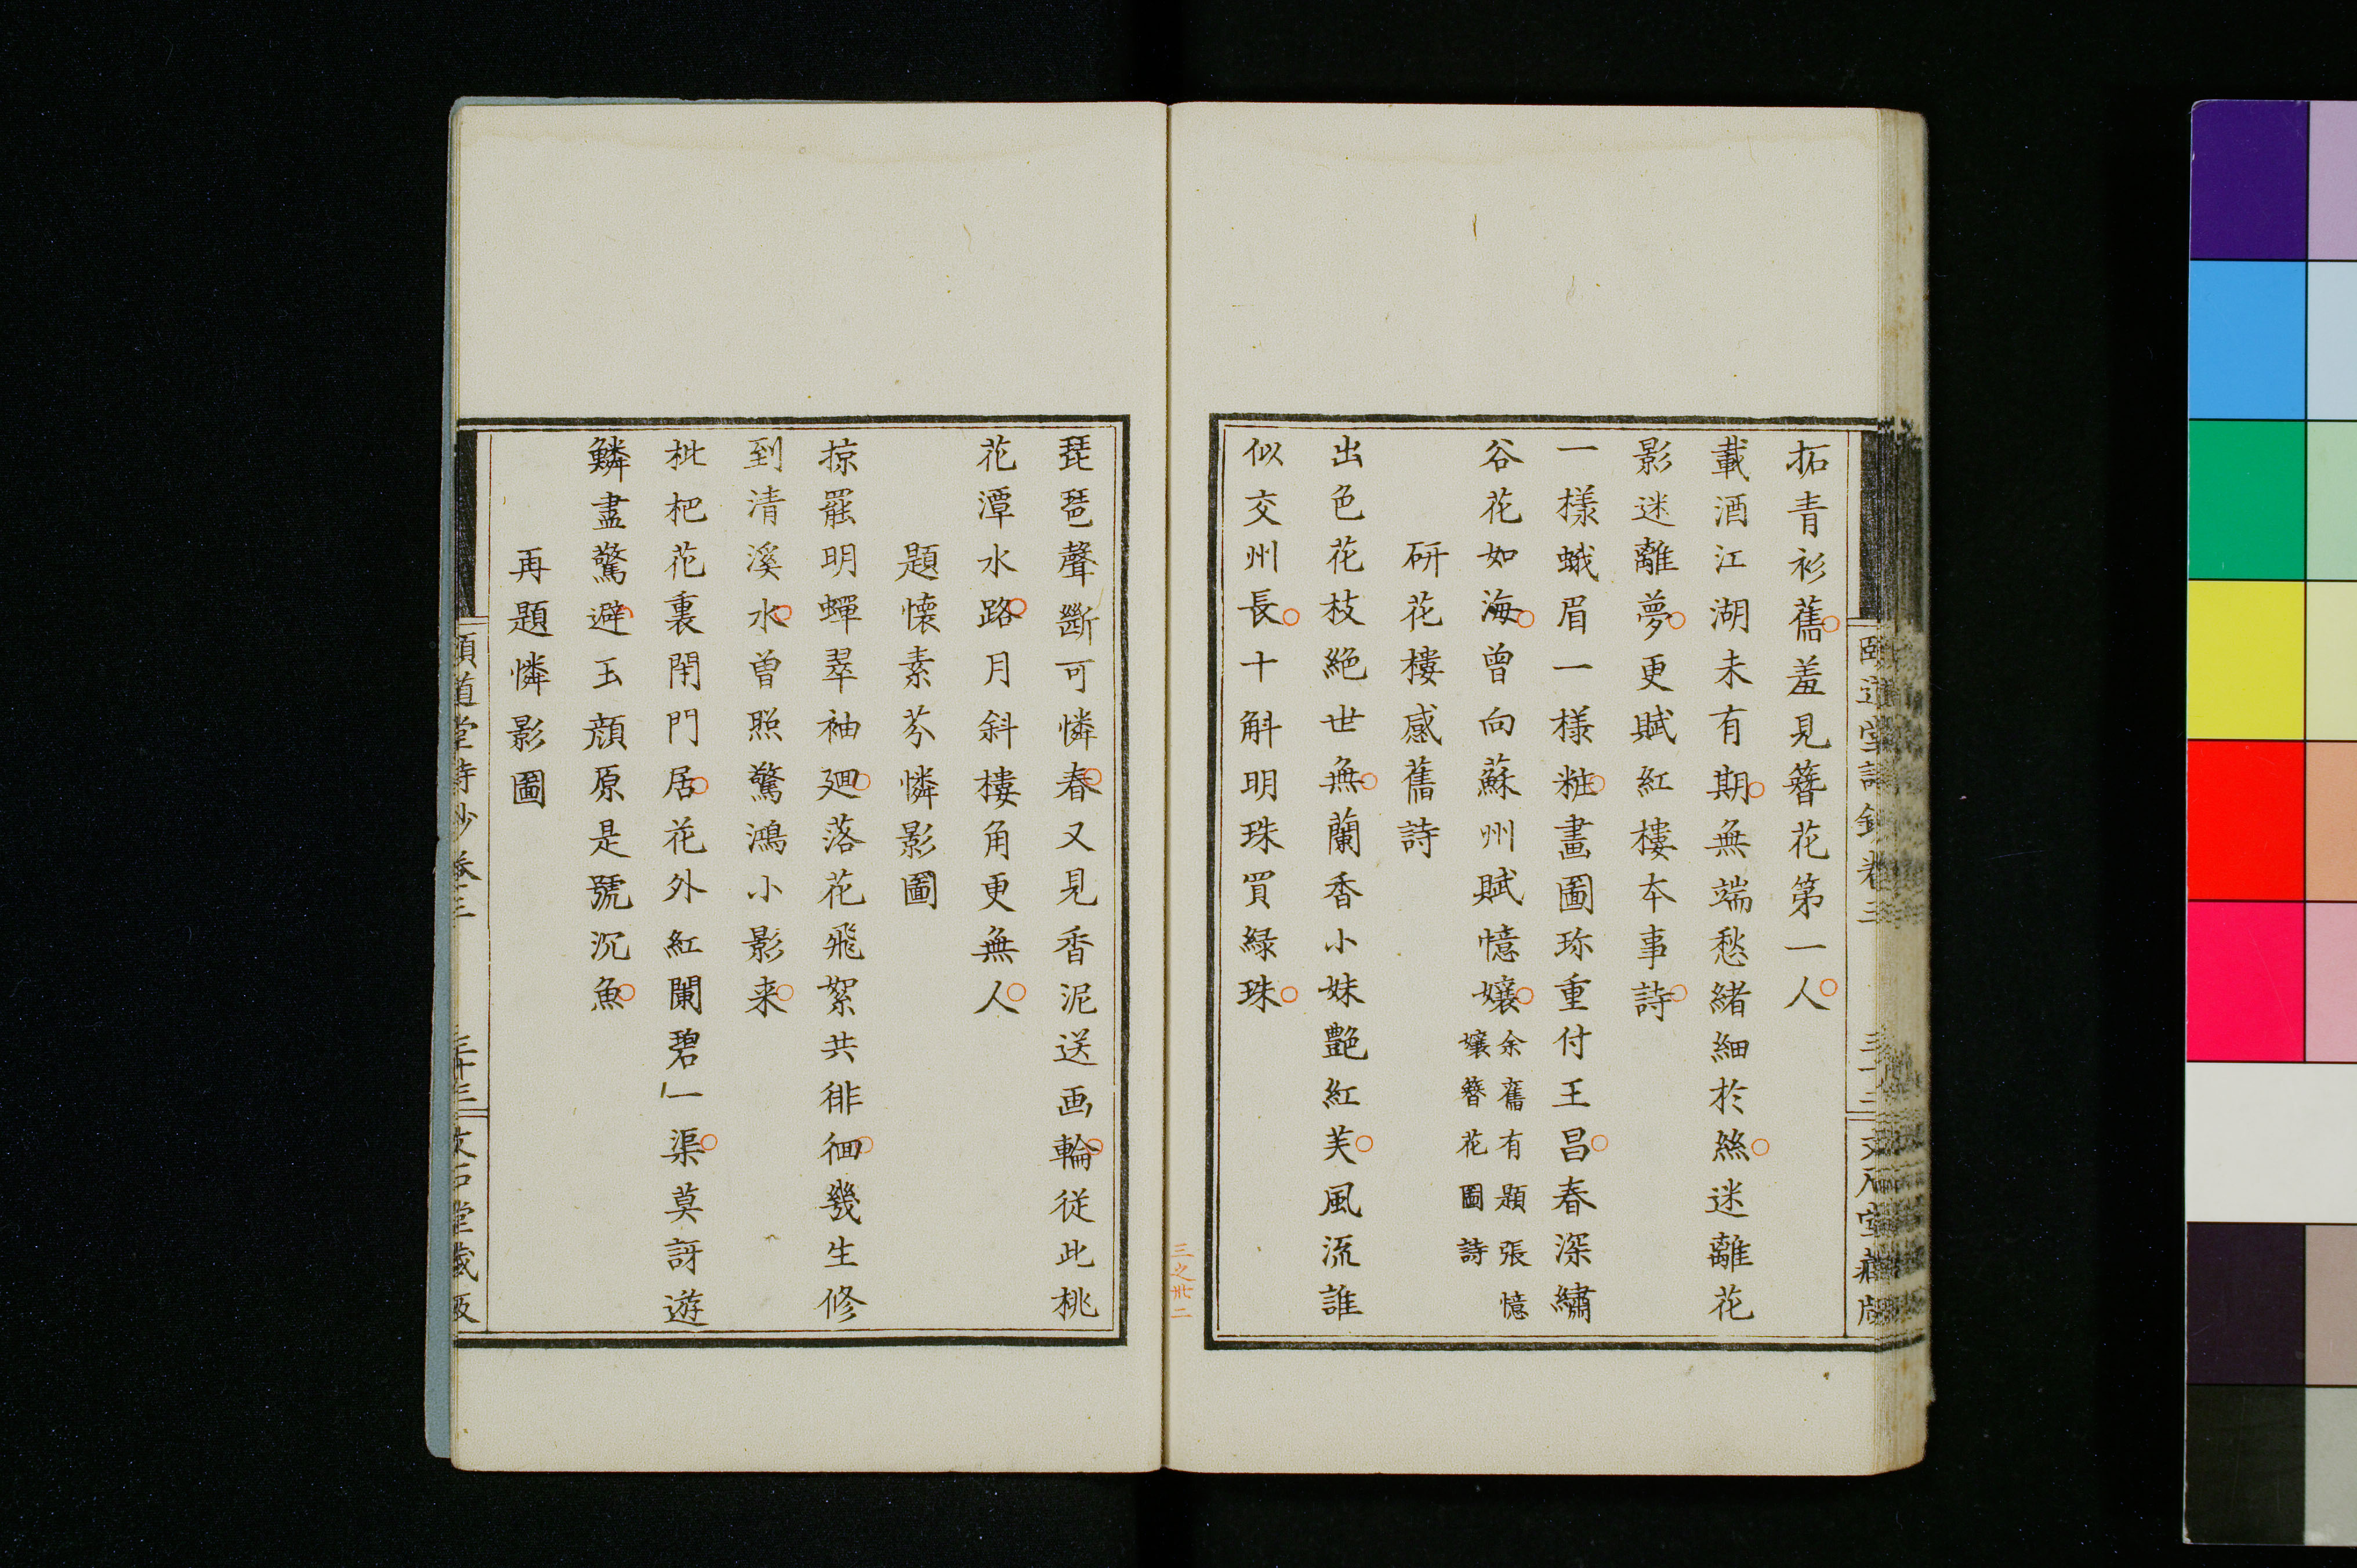 拓青衫舊羞見簪花第一人
載酒江湖未有期無端愁緒細於絲迷離花
影迷離夢更賦紅樓本事詩
一樣蛾眉一樣粧畫圖珎重付王昌春深繡
谷花如海曾向蘇州賦憶孃余舊有題張憶
孃簪花圖詩
研花樓感舊詩
出色花枝絕世無蘭香小妹艷紅芙風流誰
似交州長十斛明珠買綠珠
三之卅二
琵琶聲斷可憐春又見香泥送画輪從此桃
花潭水路月斜樓角更無人
題懷素芬憐影圖
掠鬟明蟬翠袖廻落花飛絮共徘徊幾生修
到清溪水曾照驚鴻小影来
枇杷花裏閉門居花外紅闌碧一渠莫訝遊
鱗盡驚避玉顏原是號沉魚
再題憐影圖
頤道堂詩鈔卷三
三十三
文石堂藏版